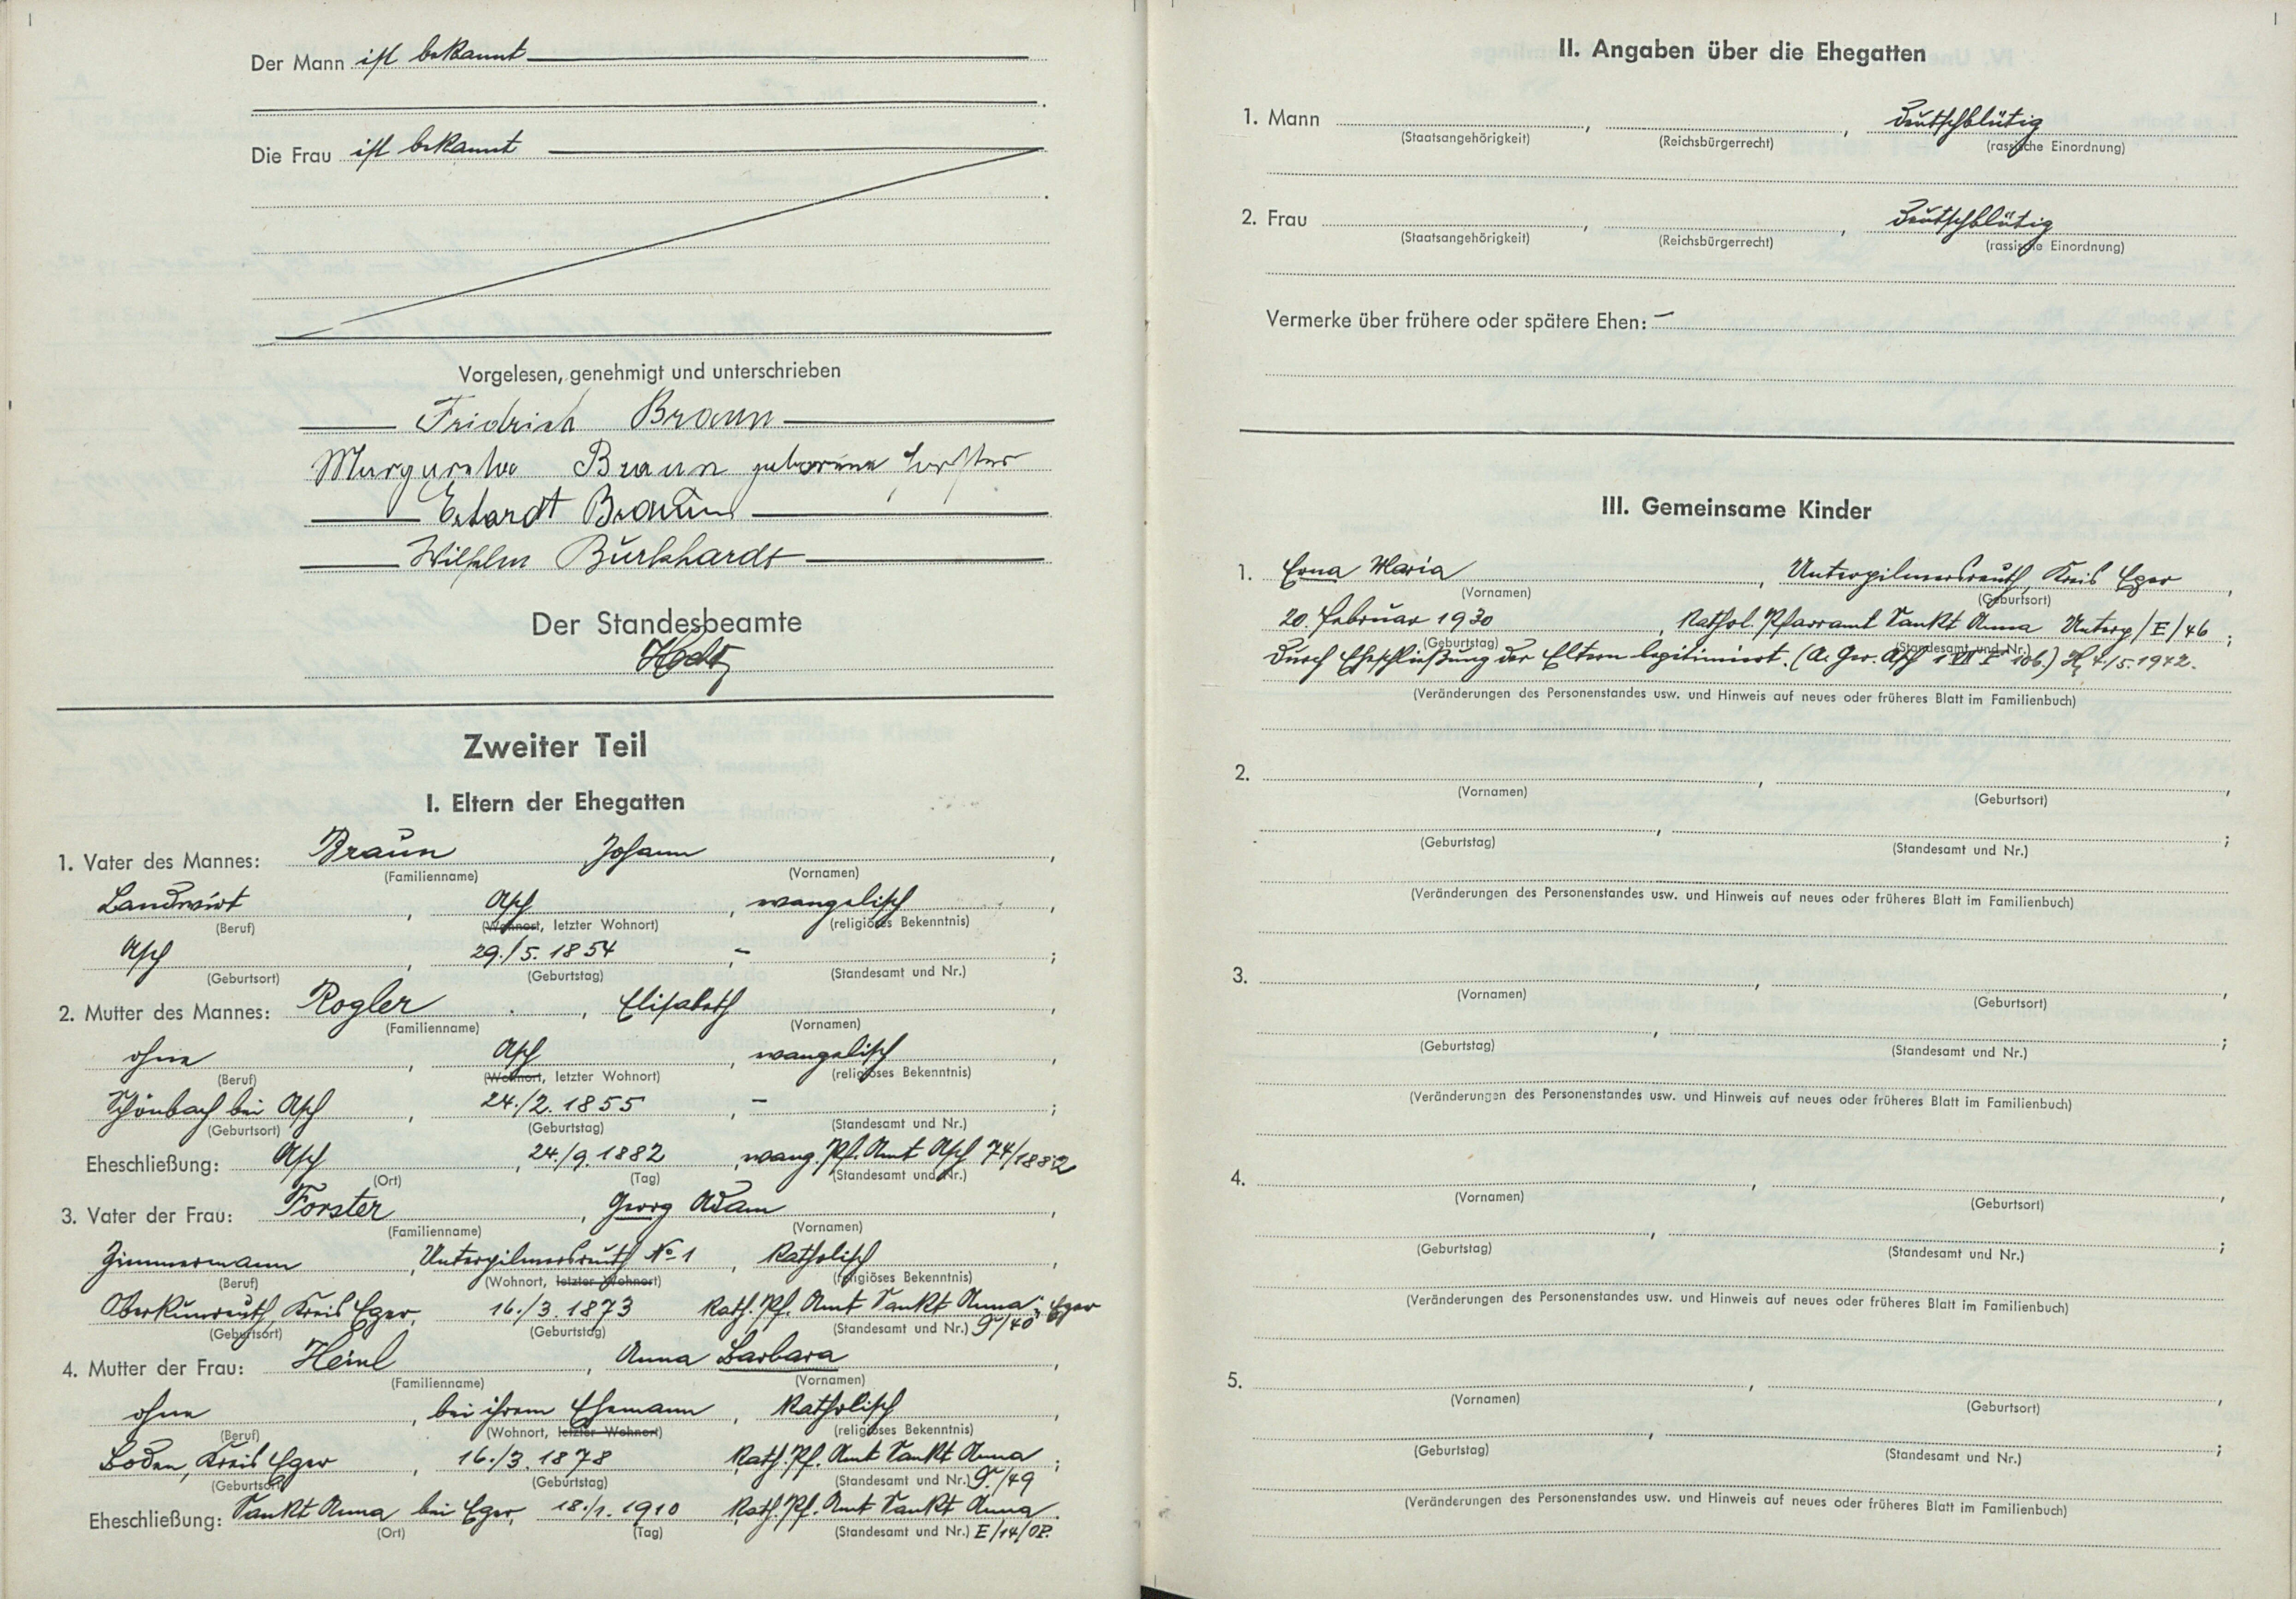 Der Mann ist bekannt
Die Frau ist bekannt
Vorgelesen, genehmigt und unterschrieben
Fridrich Braun
Margareta Braun geborene Forster
Erhardt Braun
Wilhelm Burkhardt
Der Standesbeamte
Zweiter Teil
I. Eltern der Ehegatten
1. Vater des Mannes: Braun Johann,
(Familienname) (Vornamen)
Landwirt, Asch, evangelisch,
(Beruf) (Wohnort, letzter Wohnort) (religiöses Bekenntnis)
Asch, 29./5. 1854, – ;
(Geburtsort) (Geburtstag) (Standesamt und Nr.)
2. Mutter des Mannes: Rogler, Elisabeth,
(Familienname) (Vornamen)
ohne, Asch, evangelisch,
(Beruf) (Wohnort, letzter Wohnort) (religiöses Bekenntnis)
Schönbach bei Asch, 24./2. 1855, – ;
(Geburtsort) (Geburtstag) (Standesamt und Nr.)
Eheschließung: Asch, 24./9. 1882, evang. Pf. Amt Asch 74/1882
(Ort) (Tag) (Standesamt und Nr.)
3. Vater der Frau: Forster, Georg Adam,
(Familienname) (Vornamen)
Zimmermann, Unterpilmersreuth No 1, katholisch,
(Beruf) (Wohnort, letzter Wohnort) (religiöses Bekenntnis)
Oberkunreuth, Kreis Eger, 16./3. 1873 Kath. Pf. Amt Sankt Anna, Eger
(Geburtsort) (Geburtstag) (Standesamt und Nr.)
4. Mutter der Frau: Heinl, Anna Barbara,
(Familienname) (Vornamen)
ohne, bei ihrem Ehemann, katholisch,
(Beruf) (Wohnort, letzter Wohnort) (religiöses Bekenntnis)
Boden, Kreis Eger, 16./3. 1878 Kath. Pf. Amt Sankt Anna ;
(Geburtsort) (Geburtstag) (Standesamt und Nr.)
Eheschließung: Sankt Anna bei Eger, 18./1. 1910 Kath. Pf. Amt Sankt Anna.
(Ort) (Tag) (Standesamt und Nr.) E/14/08.
II. Angaben über die Ehegatten
1. Mann , , deutschblütig
(Staatsangehörigkeit) (Reichsbürgerrecht) (rassische Einordnung)
2. Frau , , deutschblütig
(Staatsangehörigkeit) (Reichsbürgerrecht) (rassische Einordnung)
Vermerke über frühere oder spätere Ehen: –
III. Gemeinsame Kinder
1. Erna Maria, Unterpilmersreuth, Kreis Eger,
(Vornamen) (Geburtsort)
20. Februar 1930, Kathol. Pfarramt Sankt Anna Unterp/E/46 ;
(Geburtstag) (Standesamt und Nr.)
Durch Eheschließung der Eltern legitimiert. (A. Ger. Asch 1 VII F 106.) 4./5. 1942.
(Veränderungen des Personenstandes usw. und Hinweis auf neues oder früheres Blatt im Familienbuch)
2. , ,
(Vornamen) (Geburtsort)
, ;
(Geburtstag) (Standesamt und Nr.)
(Veränderungen des Personenstandes usw. und Hinweis auf neues oder früheres Blatt im Familienbuch)
3. , ,
(Vornamen) (Geburtsort)
, ;
(Geburtstag) (Standesamt und Nr.)
(Veränderungen des Personenstandes usw. und Hinweis auf neues oder früheres Blatt im Familienbuch)
4. , ,
(Vornamen) (Geburtsort)
, ;
(Geburtstag) (Standesamt und Nr.)
(Veränderungen des Personenstandes usw. und Hinweis auf neues oder früheres Blatt im Familienbuch)
5. , ,
(Vornamen) (Geburtsort)
, ;
(Geburtstag) (Standesamt und Nr.)
(Veränderungen des Personenstandes usw. und Hinweis auf neues oder früheres Blatt im Familienbuch)